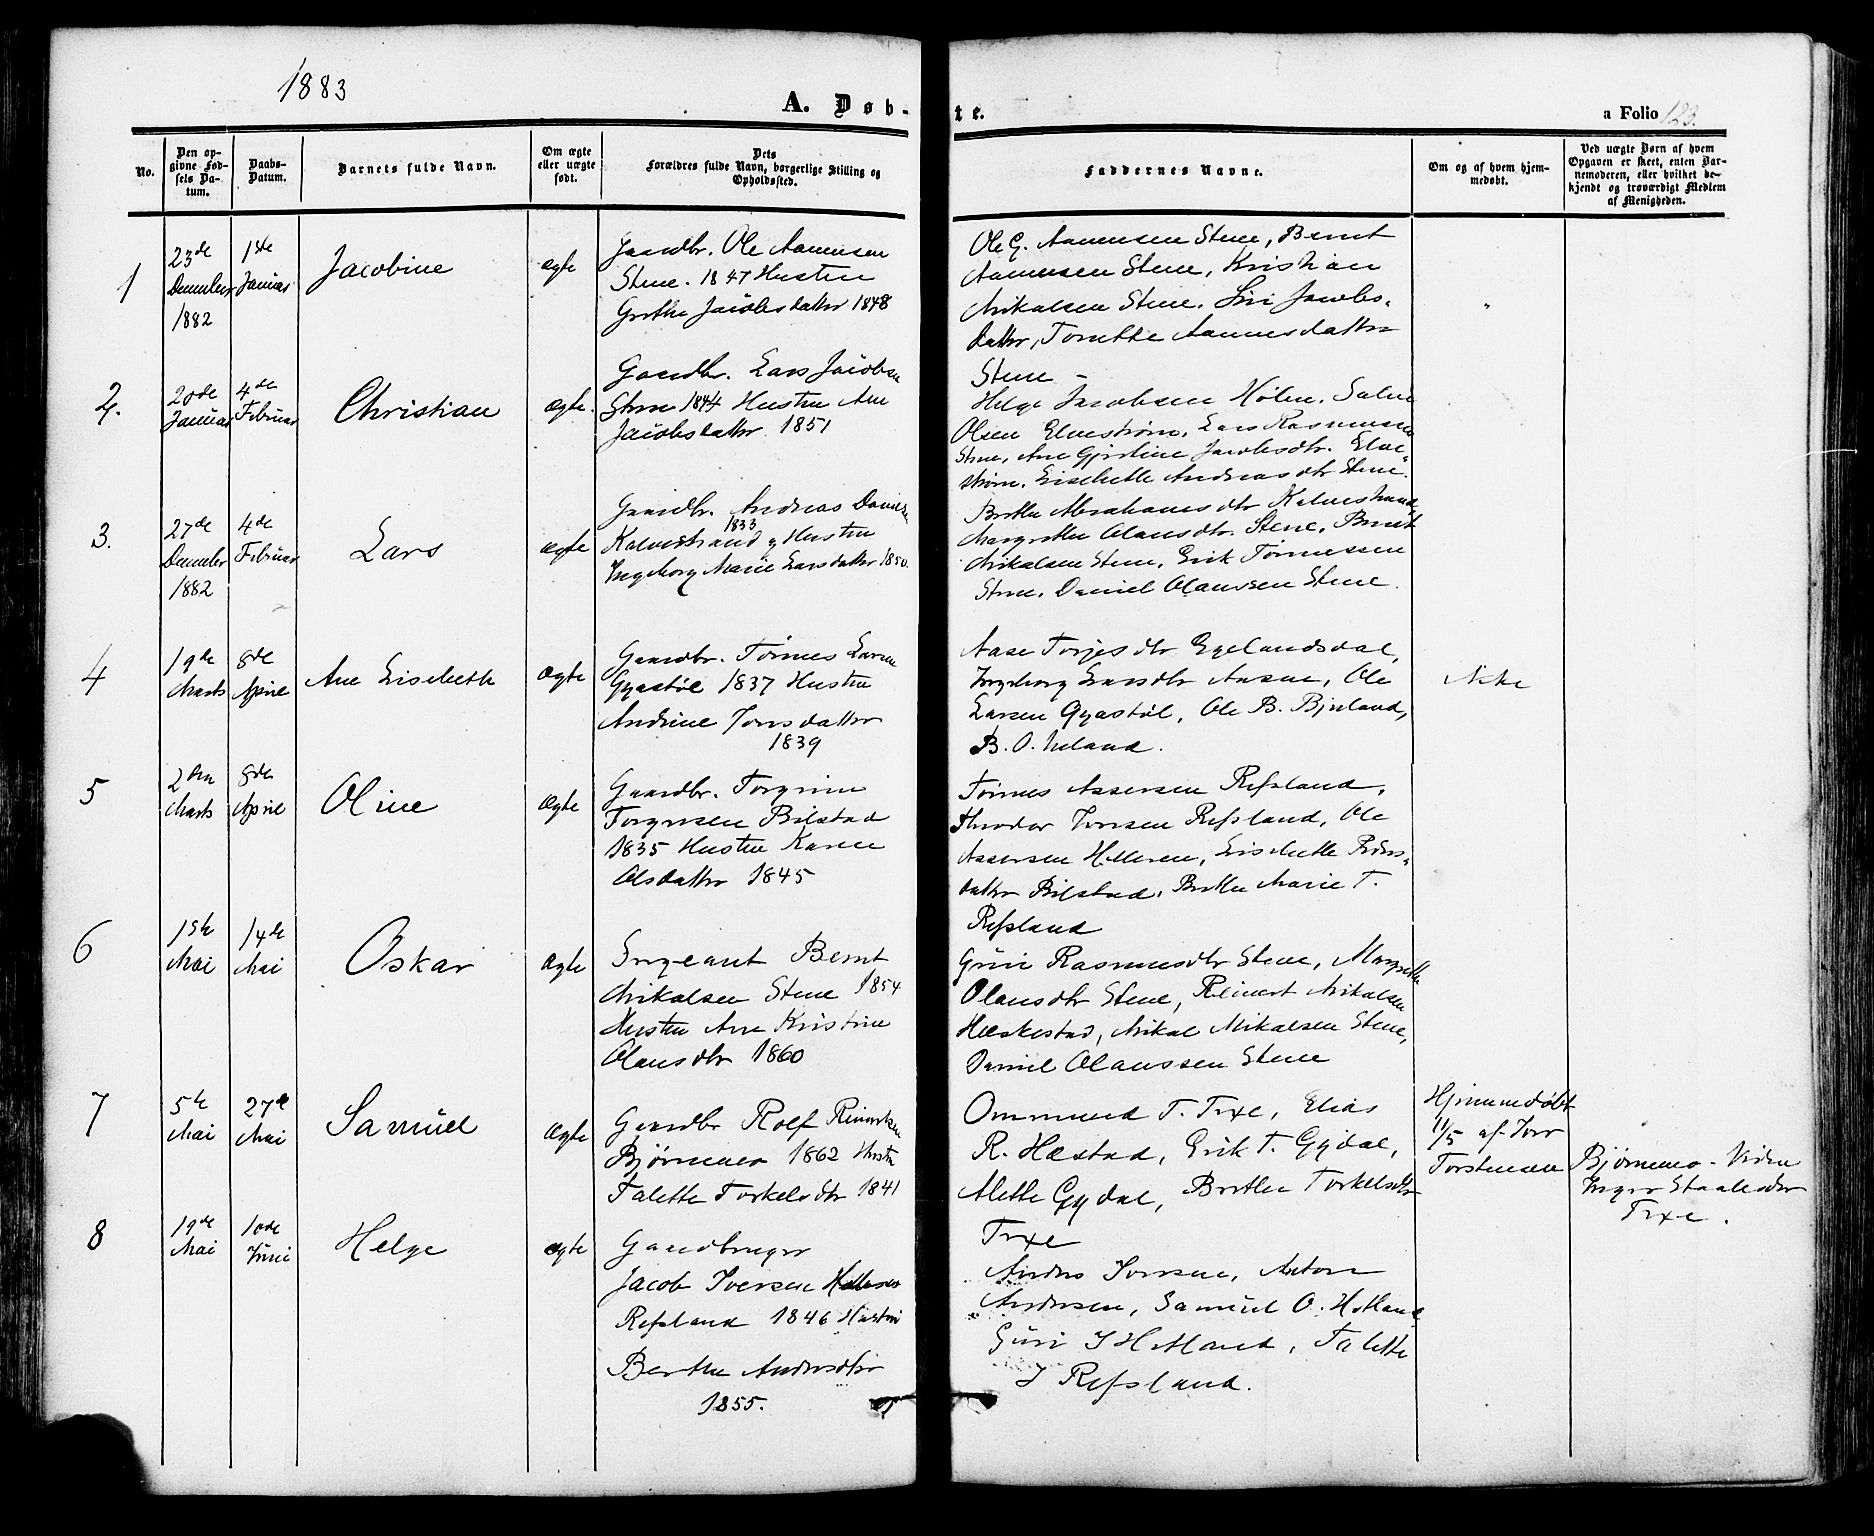 1883
A. Døb-
te.
a Folio 123.
No.
Den op-
givne Fød-
sels Da-
tum.
Daabs-
Datum.
Barnets fulde Navn.
Om ægte
eller uægte
født.
Dets
Forældres fulde Navn, borgerlige Stilling og
Opholdssted.
Faddernes Navne.
Om og af hvem hjem-
medøbt.
Ved uægte Børn af hvem
Opgaven er skeet, enten Bar-
nemoderen, eller hvilket be-
kjendt og troværdigt Medlem
af Menigheden.
1
23de
December
1882
1ste
Januar
Jacobine
ægte
Gaardbr. Ole Aanensen
Stene. 1847 Hustru
Grethe Jacobsdatter 1848
Ole G. Aanensen Stene, Bernt
Aanensen Stene, Kristian
Mikalsen Stene, Siri Jacobs-
datter, Tonette Aanensdatter
Stene
2.
20de
Januar
4de
Februar
Christian
ægte.
Gaardbr. Lars Jacobsen
Stene 1844 Hustru Ane
Jacobsdatter 1851
Helge Jacobsen Hølen, Salve
Olsen Elvestrøm, Lars Rasmusen
Stene, Ane Gjertine Jacobsdtr. Elve-
strøm. Lisebette Andreasdtr Stene.
3.
27de
December
1882
4de
Februar
Lars
ægte
Gaardbr. Andreas Danielsen
1833
Kalvestrand og Hustru
Ingeborg Marie Larsdatter 1850.
Berthe Abrahamsdtr Kalvestrand
Margrethe Olausdtr. Stene, Bernt
Mikalsen Stene, Erik Tønnessen
Stene, Daniel Olaussen Stene.
4
19de
Marts
8de
April
Ane Lisebeth
ægte
Gaardbr. Tønnes Larsen
Gyastøl 1837 Hustru
Andrine Jonsdatter
1839
Aase Torjesdtr Egelandsdal,
Ingeborg Larsdtr Aasen, Ole
Larsen Gyastøl, Ole B. Bjuland,
B. O. Ueland.
Ikke
5
2den
Marts
8de
April
Oline
ægte
Gaardbr. Torgrim
Torgersen Bilstad
1835 Hustru Karen
Olsdatter 1845
Tønnes Assersen Refsland,
Theodor Jonsen Refsland, Ole
Assersen Helleren, Lisebette Peders-
datter Bilstad, Berthe Marie T.
Refsland
6
1ste
Mai
14de
Mai
Oskar
ægte
Sergeant Bernt
Mikalsen Stene 1854
Hustru Ane Kristine
Olausdtr 1860
Guri Rasmusdtr Stene, Margrethe
Olausdtr Stene, Reinert Mikalsen
Hæskestad, Mikal Mikalsen Stene,
Daniel Olaussen Stene
7
5te
Mai
27de
Mai
Samüel
ægte
Gaardbr Rolf Reinertsen
Bjørnemo 1862 Hustru
Talette Torkelsdtr 1841
Ommund T. Txe, Elias
R. Hæstad, Erik T. Gydal,
Alette Gydal, Berthe Torkelsdtr
Txe
Hjemmedøbt
11/5 af Tore
Torstensen
Bjørnemo - Viden
Inger Staalesdtr
Txe.
8
19de
Mai
10de
Juni
Helge
ægte
Gaardbruger
Jacob Iversen
Refsland 1846 Hustru
Berthe Andersdtr
1855.
Anders Iversen, Anton
Andersen, Samüel O. Hetland
Guri J Hetland, Talette
J Refsland.